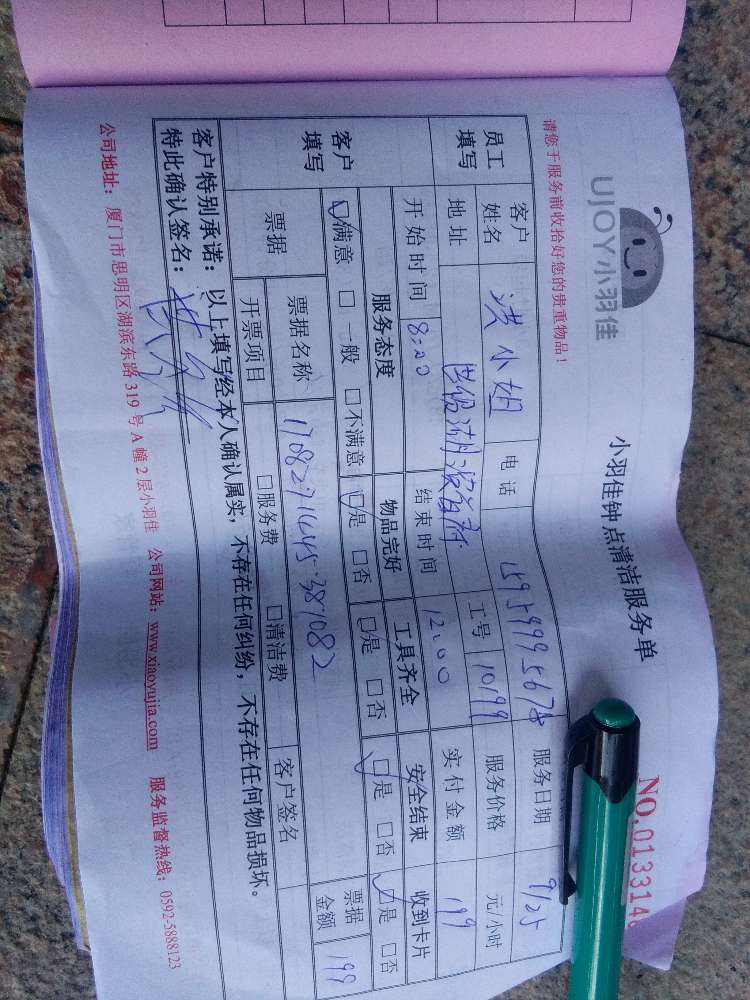 UJOY小羽佳
小羽佳钟点清洁服务单
NO.013314
请您于服务前收拾好您的贵重物品！
员工填写 客户姓名 洪小姐 电话 服务日期 9/25
地址 工号 10199 服务价格 元/小时
客户填写 开始时间 8:20 结束时间 12:00 实付金额 199
服务态度 物品完好 工具齐全 安全结束 收到卡片
☑满意 □一般 □不满意 ☑是 □否 ☑是 □否 ☑是 □否 ☑是 □否
票据 票据名称 票据金额 199
开票项目 □服务费 □清洁费 客户签名
客户特别承诺：以上填写经本人确认属实，不存在任何纠纷，不存在任何物品损坏。
特此确认签名：
公司地址：厦门市思明区湖滨东路 319 号 A 幢 2 层小羽佳 公司网站：www.xiaoyujia.com 服务监督热线：0592-5888123